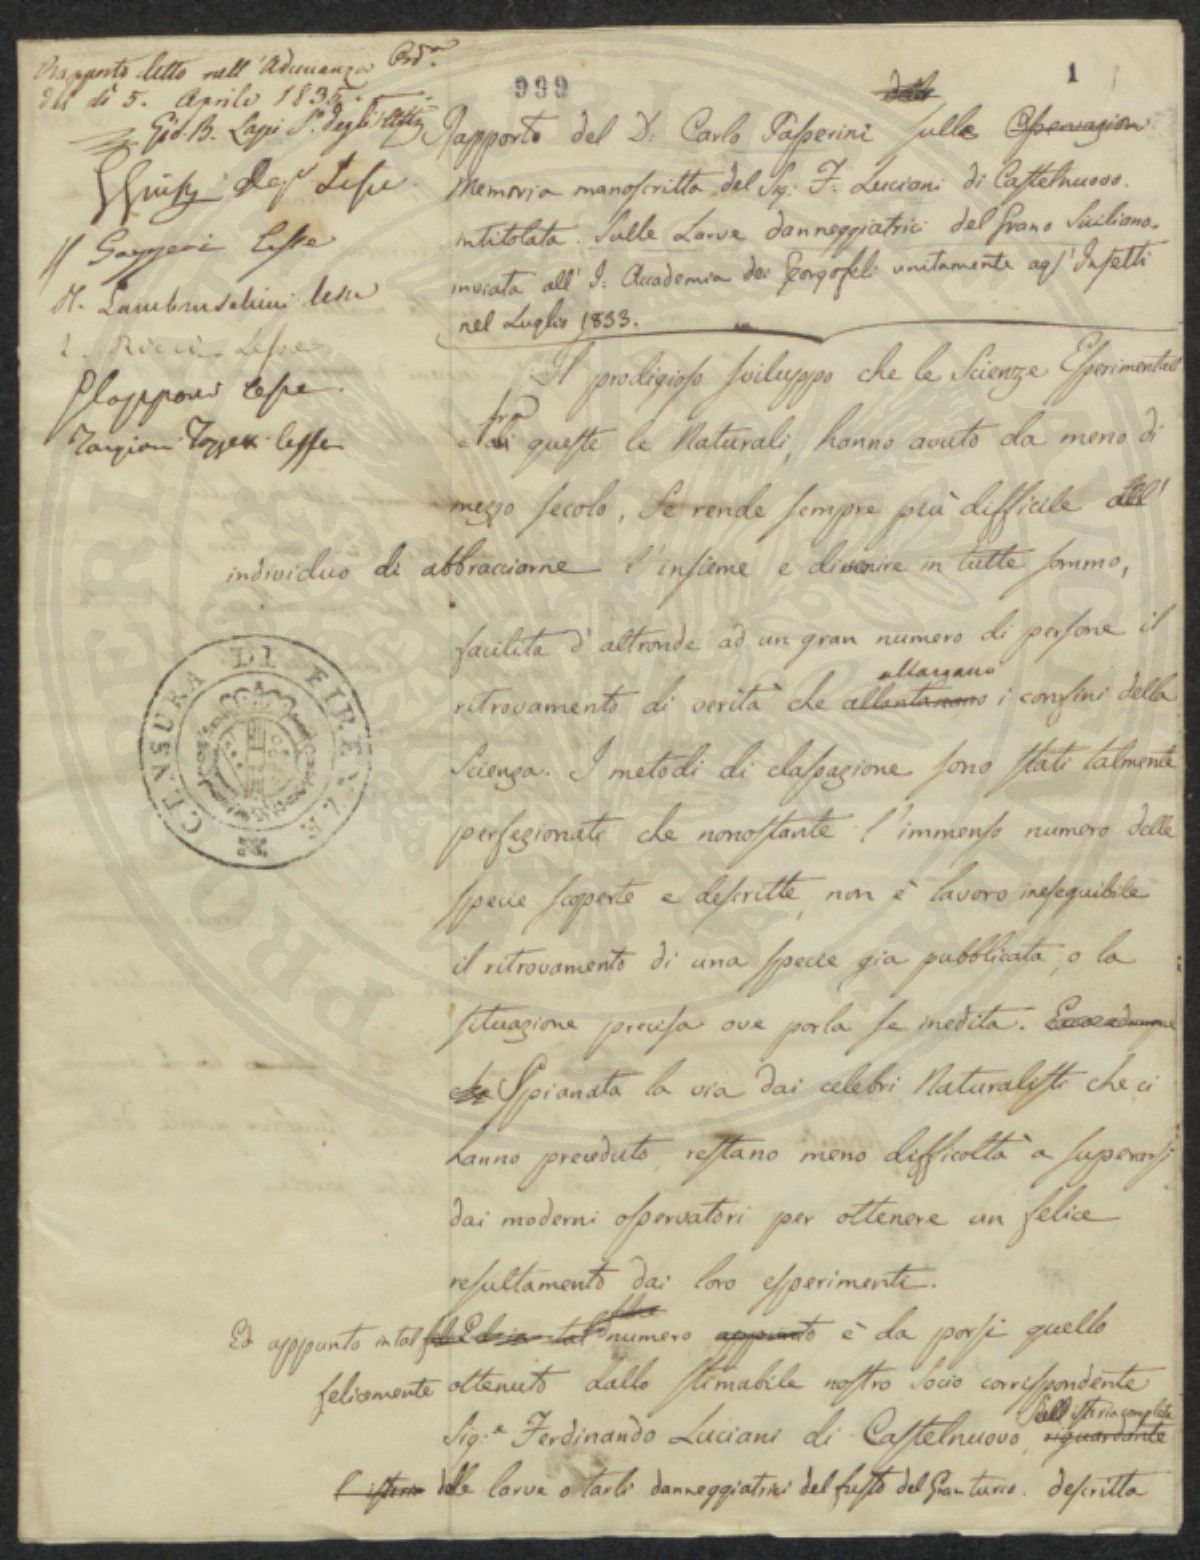 Rapporto letto nell'Adunanza Ord.ª
del dì 5. Aprile 1835.
Gio. B. Lapi S. degli Atti
Lesse
Gazzeri Lesse
R. Lambruschini lesse
L. Ricci Lesse
Lapponi lesse
Targioni Tozzetti lesse
999
1
delle
Rapporto del D. Carlo Passerini sulle Osservazioni
Memoria manoscritta del Sig. F. Luciani di Castelnuovo.
intitolata. Sulle Larve danneggiatrici del Grano Siciliano.
inviata all' I. Accademia dei Georgofili unitamente agl' Insetti
nel Luglio 1833.
Il prodigioso sviluppo che le Scienze Esperimentali
fra
e di queste le Naturali, hanno avuto da meno di
mezzo secolo, Se rende sempre più difficile all'
individuo di abbracciarne l'insieme e divenire in tutte sommo,
facilita d'altronde ad un gran numero di persone il
allargano
ritrovamento di verità che allontanano i confini della
Scienza. I metodi di classazione sono stati talmente
perfezionati che nonostante l'immenso numero delle
specie scoperte e descritte, non è lavoro ineseguibile
il ritrovamento di una specie gia pubblicata, o la
situazione precisa ove porla se inedita. Ecco adunque
che Spianata la via dai celebri Naturalisti che ci
hanno preceduto, restano meno difficoltà a superarsi
dai moderni osservatori per ottenere un felice
resultamento dai loro esperimenti.
Ed appunto in tal numero appunto è da porsi quello
felicemente ottenuto dallo stimabile nostro Socio corrispondente
Sull' Storia completa
Sig.e Ferdinando Luciani di Castelnuovo, riguardante
l'istoria delle larve o tarli danneggiatrici del fusto del Gran turco. descritta
CLAVSURA DI FIRENZE